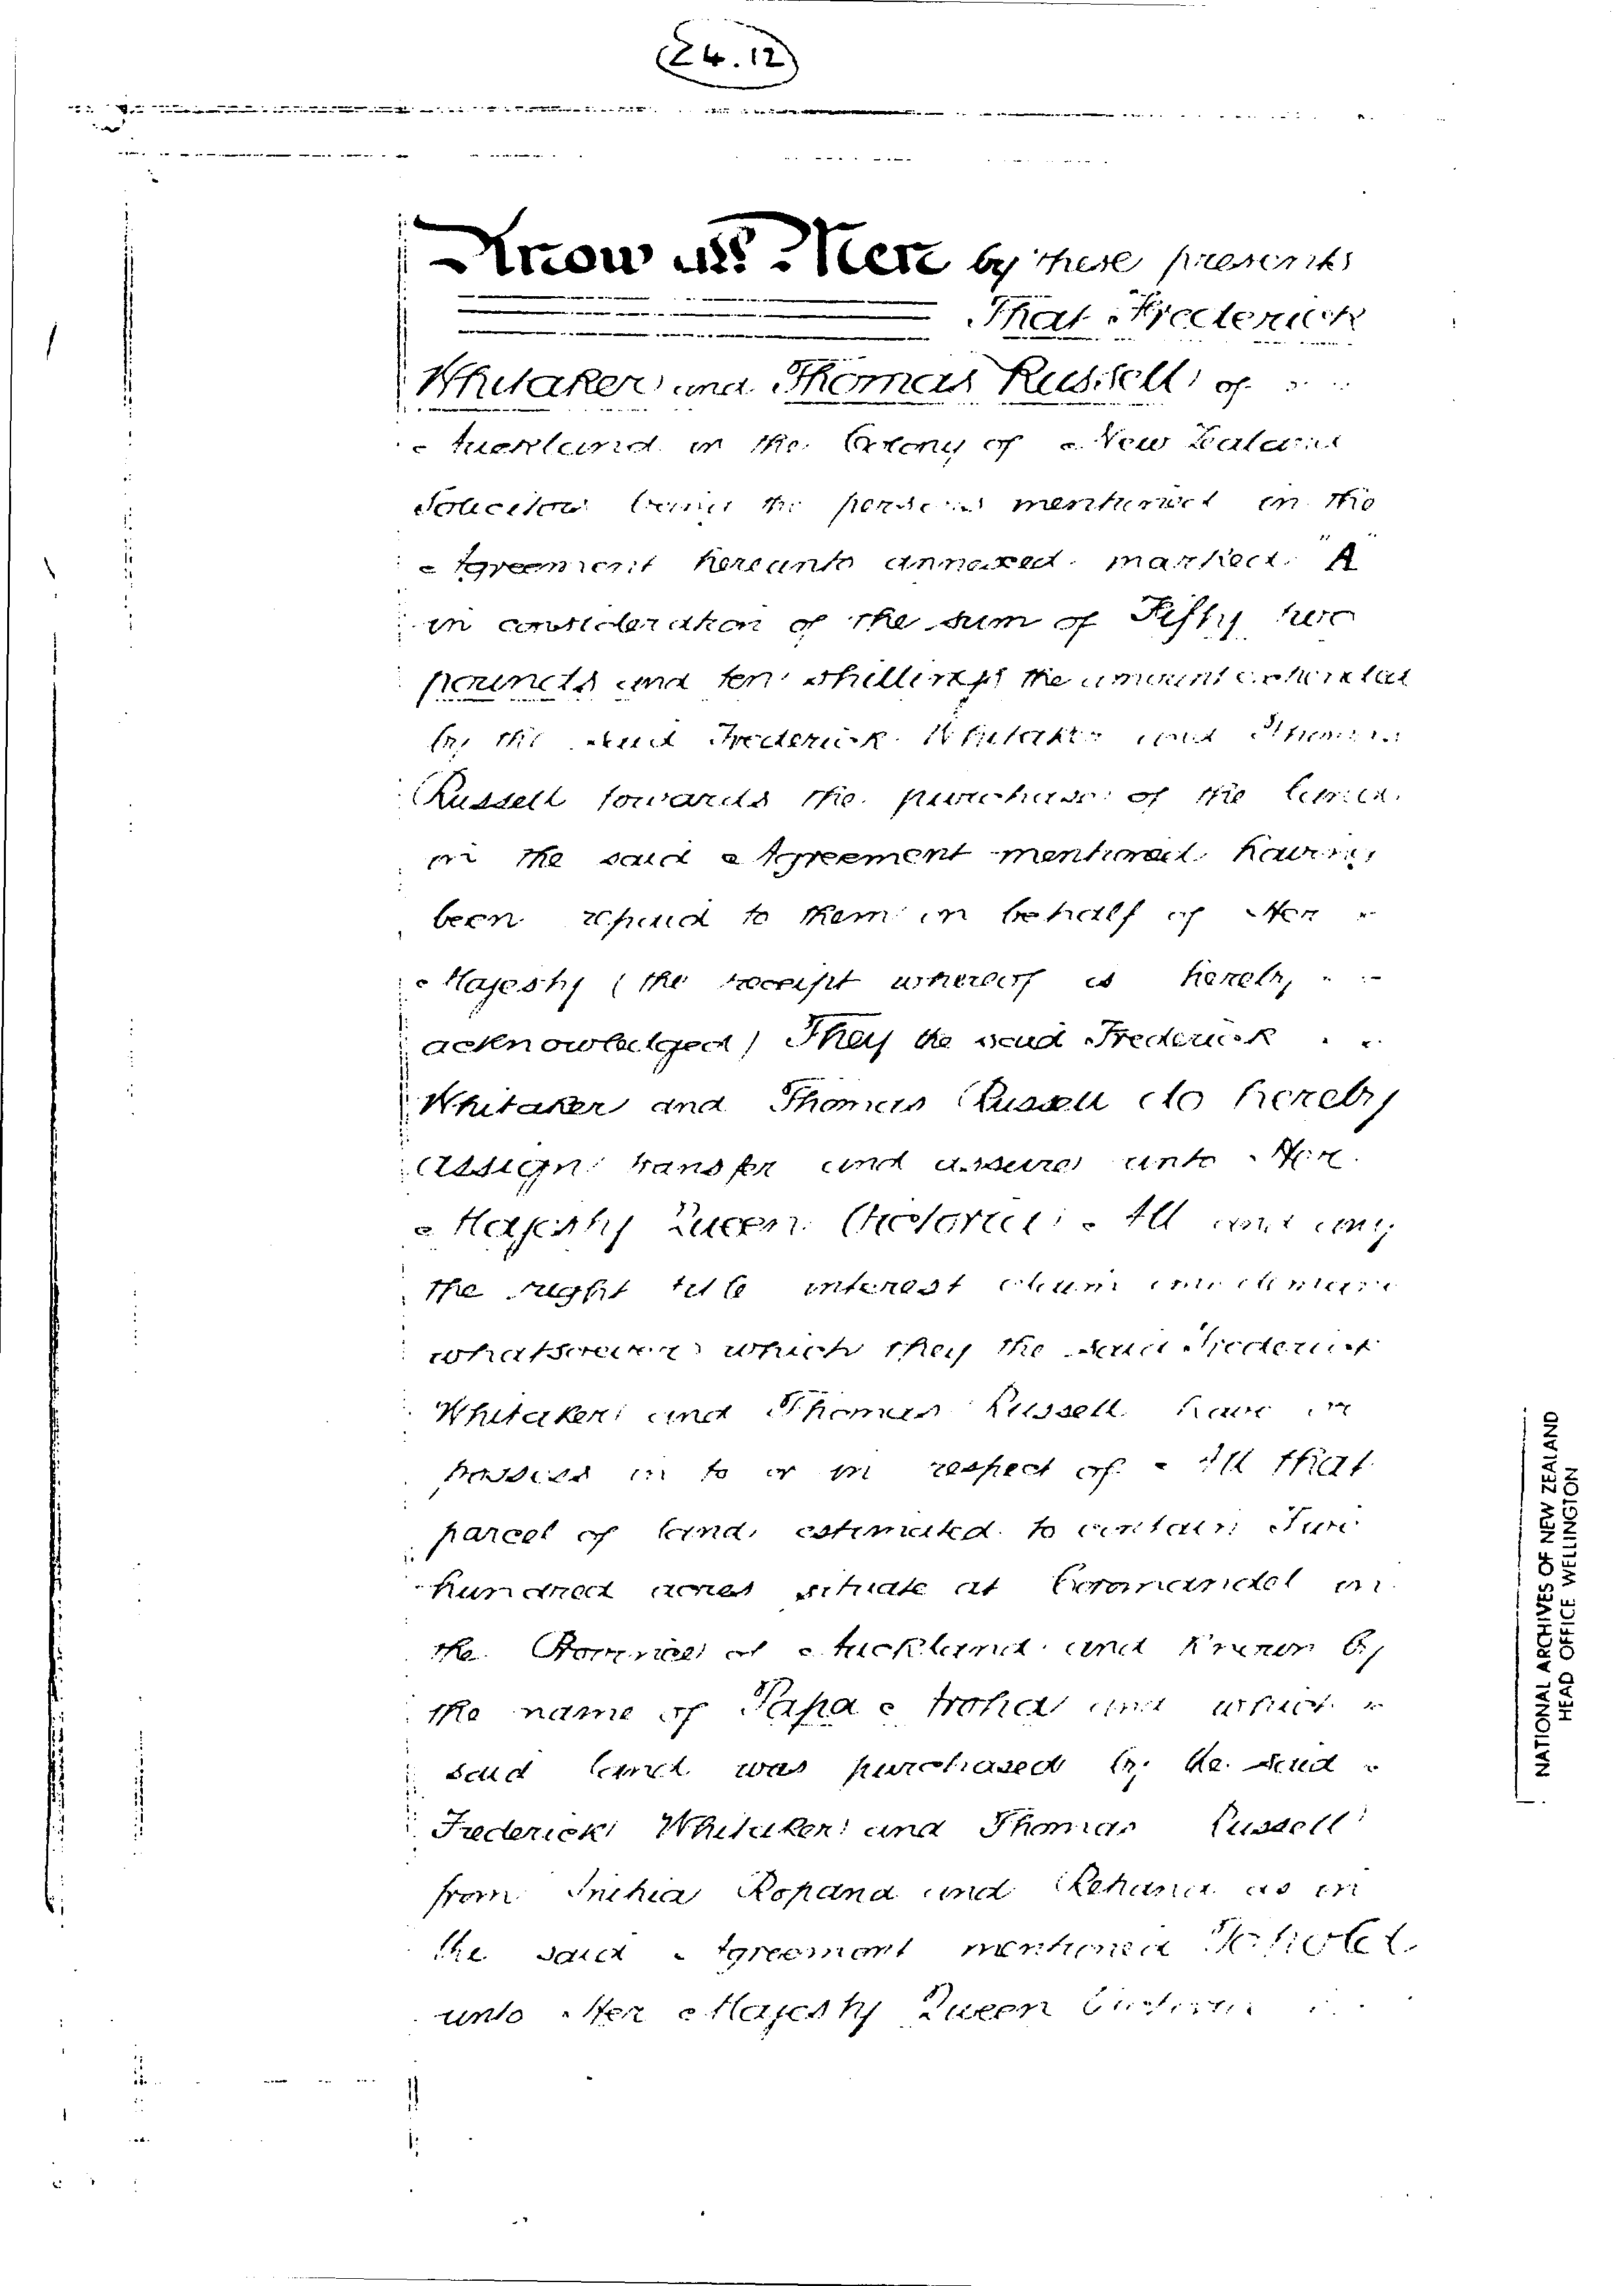 24.12
Know all Men by these presents
That Frederick
Whitaker and Thomas Russell of
Auckland in the Colony of New Zealand
Solicitors being the persons mentioned in the
Agreement hereunto annexed marked "A"
in consideration of the sum of Fifty two
pounds and ten shillings the amount expended
by the said Frederick Whitaker and Thomas
Russell towards the purchase of the land
in the said Agreement mentioned having
been repaid to them in behalf of Her
Majesty (the receipt whereof is hereby
acknowledged) They the said Frederick
Whitaker and Thomas Russell do hereby
assign transfer and assure unto Her
Majesty Queen Victoria All and any
the right title interest claim and demand
whatsoever which they the said Frederick
Whitaker and Thomas Russell have or
possess in to or in respect of All that
parcel of land estimated to contain Two
hundred acres situate at Coromandel in
the Province of Auckland and known by
the name of Papa Aroha and which
said land was purchased by the said
Frederick Whitaker and Thomas Russell
from Inihia Ropana and Rehana as in
the said Agreement mentioned To hold
unto Her Majesty Queen Victoria
NATIONAL ARCHIVES OF NEW ZEALAND
HEAD OFFICE WELLINGTON